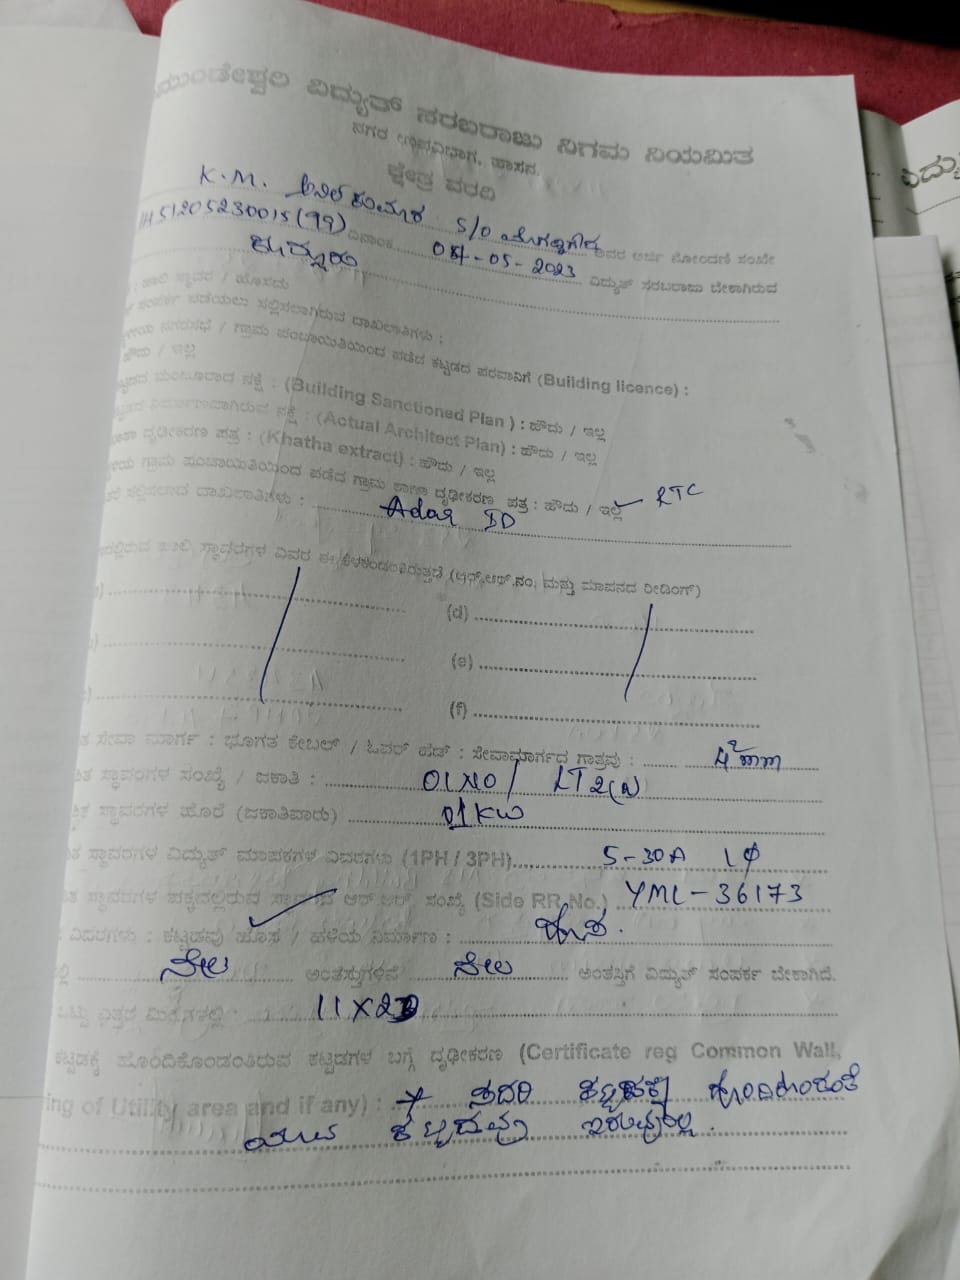 ಮುಂಡೇಶ್ವರಿ ವಿದ್ಯುತ್ ಸರಬರಾಜು ನಿಗಮ ನಿಯಮಿತ
ನಗರ ಉಪವಿಭಾಗ, ಹಾಸನ.
ಕ್ಷೇತ್ರ ವರದಿ
K.M. ಅನಿಲ್ ಕುಮಾರ S/O ರವರ ಅರ್ಜಿ ನೋಂದಣಿ ಸಂಖ್ಯೆ
H51205230015(99) ದಿನಾಂಕ 04-05-2023 ವಿದ್ಯುತ್ ಸರಬರಾಜು ಬೇಕಾಗಿರುವ
ಹಾಲಿ ಸ್ಥಾವರ / ಹೊಸದು
ಸಂಪರ್ಕ ಪಡೆಯಲು ಸಲ್ಲಿಸಲಾಗಿರುವ ದಾಖಲಾತಿಗಳು :
ನಗರಸಭೆ / ಗ್ರಾಮ ಪಂಚಾಯತಿಯಿಂದ ಪಡೆದ ಕಟ್ಟಡದ ಪರವಾನಿಗೆ (Building licence) :
ಹೌದು / ಇಲ್ಲ
ಮಂಜೂರಾದ ನಕ್ಷೆ : (Building Sanctioned Plan ) : ಹೌದು / ಇಲ್ಲ
ನಿರ್ಮಾಣವಾಗಿರುವ ನಕ್ಷೆ : (Actual Architect Plan) : ಹೌದು / ಇಲ್ಲ
ದೃಢೀಕರಣ ಪತ್ರ : (Khatha extract) : ಹೌದು / ಇಲ್ಲ
ಗ್ರಾಮ ಪಂಚಾಯಿತಿಯಿಂದ ಪಡೆದ ಗ್ರಾಮ ಠಾಣಾ ದೃಢೀಕರಣ ಪತ್ರ : ಹೌದು / ಇಲ್ಲ RTC
ಸಲ್ಲಿಸಲಾದ ದಾಖಲಾತಿಗಳು : Adar ID
ಹಾಲಿ ಸ್ಥಾವರಗಳ ವಿವರ ಈ ಕೆಳಕಂಡಂತಿರುತ್ತದೆ (ಆರ್.ಆರ್.ನಂ. ಮತ್ತು ಮಾಪನದ ರೀಡಿಂಗ್)
(d)
(e)
(f)
ಸೇವಾ ಮಾರ್ಗ : ಭೂಗತ ಕೇಬಲ್ / ಓವರ್ ಹೆಡ್ : ಸೇವಾಮಾರ್ಗದ ಗಾತ್ರವು :
ಸ್ಥಾವರಗಳ ಸಂಖ್ಯೆ / ಜಕಾತಿ : 01 NO / LT2(a)
ಸ್ಥಾವರಗಳ ಹೊರೆ (ಜಕಾತಿವಾರು) 01KW
ಸ್ಥಾವರಗಳ ವಿದ್ಯುತ್ ಮಾಪಕಗಳ ವಿವರಗಳು (1PH / 3PH) 5-30A 1φ
ಸ್ಥಾವರಗಳ ಪಕ್ಕದಲ್ಲಿರುವ ಸ್ಥಾವರದ ಆರ್.ಆರ್. ಸಂಖ್ಯೆ (Side RR No.) YML-36173
ವಿವರಗಳು : ಕಟ್ಟಡವು ಹೊಸ / ಹಳೆಯ ನಿರ್ಮಾಣ : ಹೊಸ.
ನೆಲ ಅಂತಸ್ತುಗಳಿವೆ ನೆಲ ಅಂತಸ್ತಿಗೆ ವಿದ್ಯುತ್ ಸಂಪರ್ಕ ಬೇಕಾಗಿದೆ.
ಒಟ್ಟು ಎತ್ತರ ಮೀಟರ್‌ಗಳಲ್ಲಿ
ಕಟ್ಟಡಕ್ಕೆ ಹೊಂದಿಕೊಂಡಂತಿರುವ ಕಟ್ಟಡಗಳ ಬಗ್ಗೆ ದೃಢೀಕರಣ (Certificate reg Common Wall,
ing of Utility area and if any) : ಸದರಿ ಕಟ್ಟಡಕ್ಕೆ ಹೊಂದಿಕೊಂಡಂತೆ
ಯಾವ ಕಟ್ಟಡವು ಇರುವುದಿಲ್ಲ.